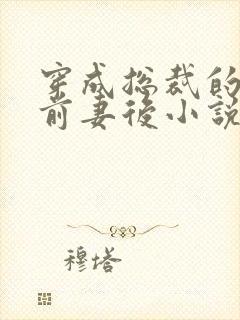 穿成总裁的
前妻後小说
穆塔